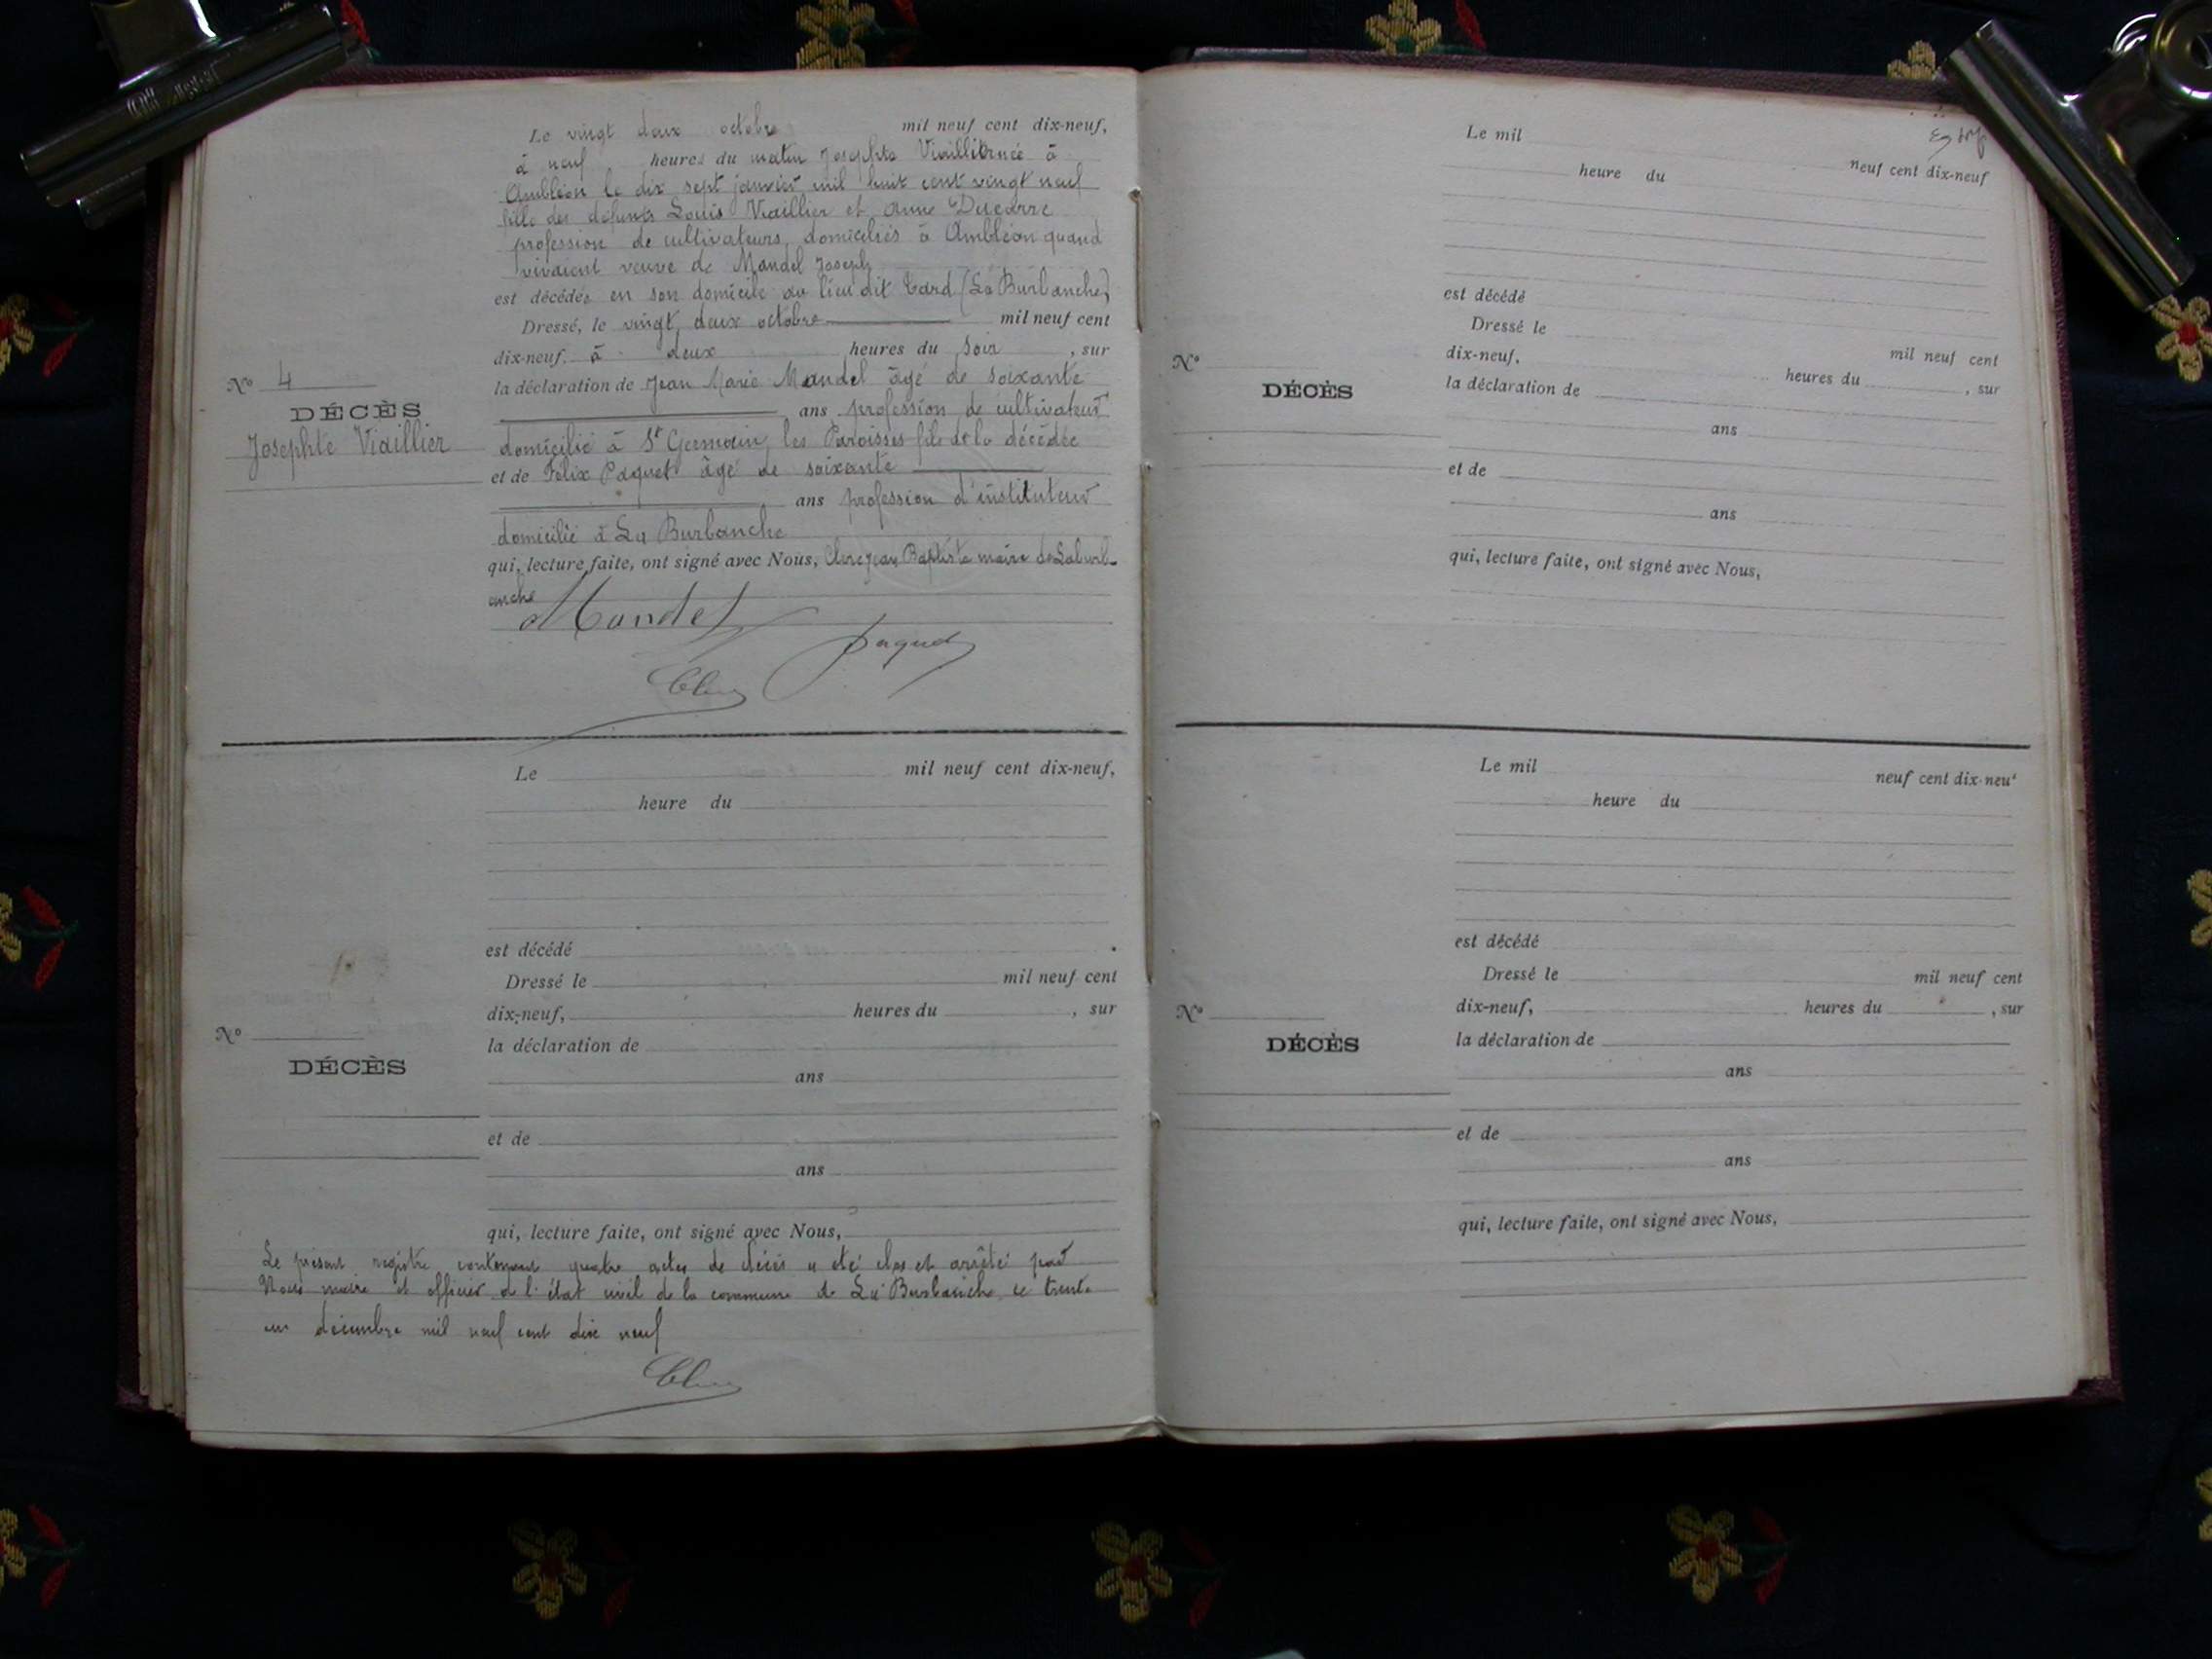 Le vingt deux octobre mil neuf cent dix-neuf,
à neuf heures du matin Josephte Viaillier née à
Ambléon le dix sept janvier mil huit cent vingt neuf
fille des défunts Louis Viaillier et Anne Ducarre
profession de cultivateurs, domiciliés à Ambléon quand
vivaient veuve de Mandel Joseph
est décédée en son domicile au lieu dit Tard (La Burbanche)
Dressé, le vingt deux octobre mil neuf cent
dix-neuf, à deux heures du soir, sur
la déclaration de Jean Marie Mandel âgé de soixante
ans profession de cultivateur
domicilié à St Germain les Paroisses fils de la décédée
et de Félix Paquet âgé de soixante
ans profession d'instituteur
domicilié à La Burbanche
qui, lecture faite, ont signé avec Nous, Clerc Jean Baptiste maire de Laburb-
anche
Mandel
Paquet
N° 4
DÉCÈS
Josephte Viaillier
Le mil neuf cent dix-neuf,
heure du
est décédé
Dressé le mil neuf cent
dix-neuf, heures du , sur
la déclaration de
ans
et de
ans
qui, lecture faite, ont signé avec Nous,
N°
DÉCÈS
Le présent registre contenant quatre actes de décès a été clos et arrêté par
Nous maire et officier de l'état civil de la commune de La Burbanche, ce trente
un décembre mil neuf cent dix neuf
Le mil
neuf cent dix-neuf
heure du
est décédé
Dressé le mil neuf cent
dix-neuf, heures du , sur
la déclaration de
ans
et de
ans
qui, lecture faite, ont signé avec Nous,
N°
DÉCÈS
Le mil
neuf cent dix-neu
heure du
est décédé
Dressé le mil neuf cent
dix-neuf, heures du , sur
la déclaration de
ans
et de
ans
qui, lecture faite, ont signé avec Nous,
N°
DÉCÈS